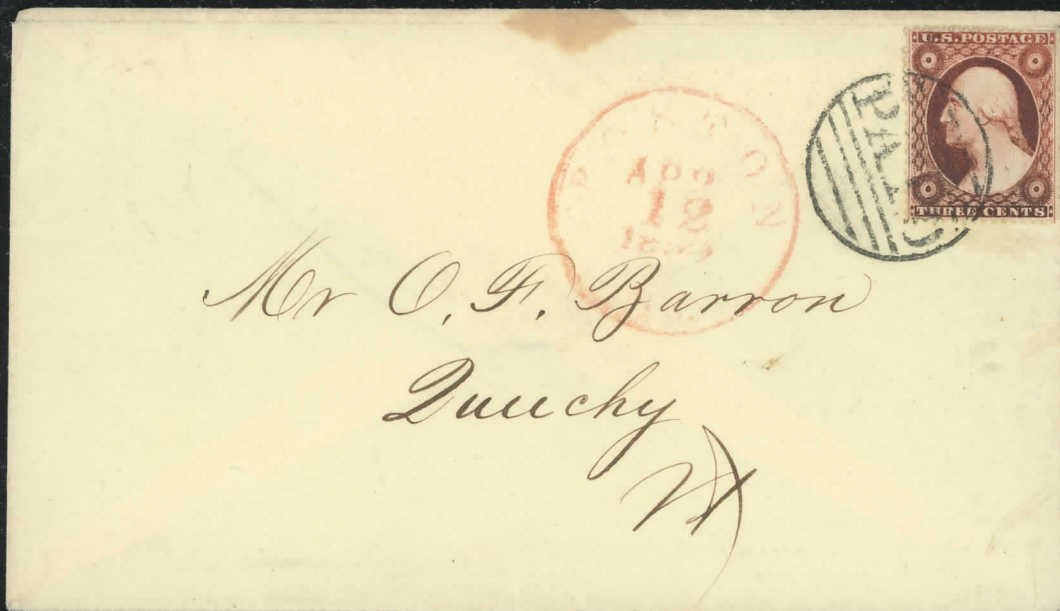 U.S. POSTAGE
THREE CENTS
PAID
BOSTON
APR
12
Mr O. F. Barron
Queechy
Vt